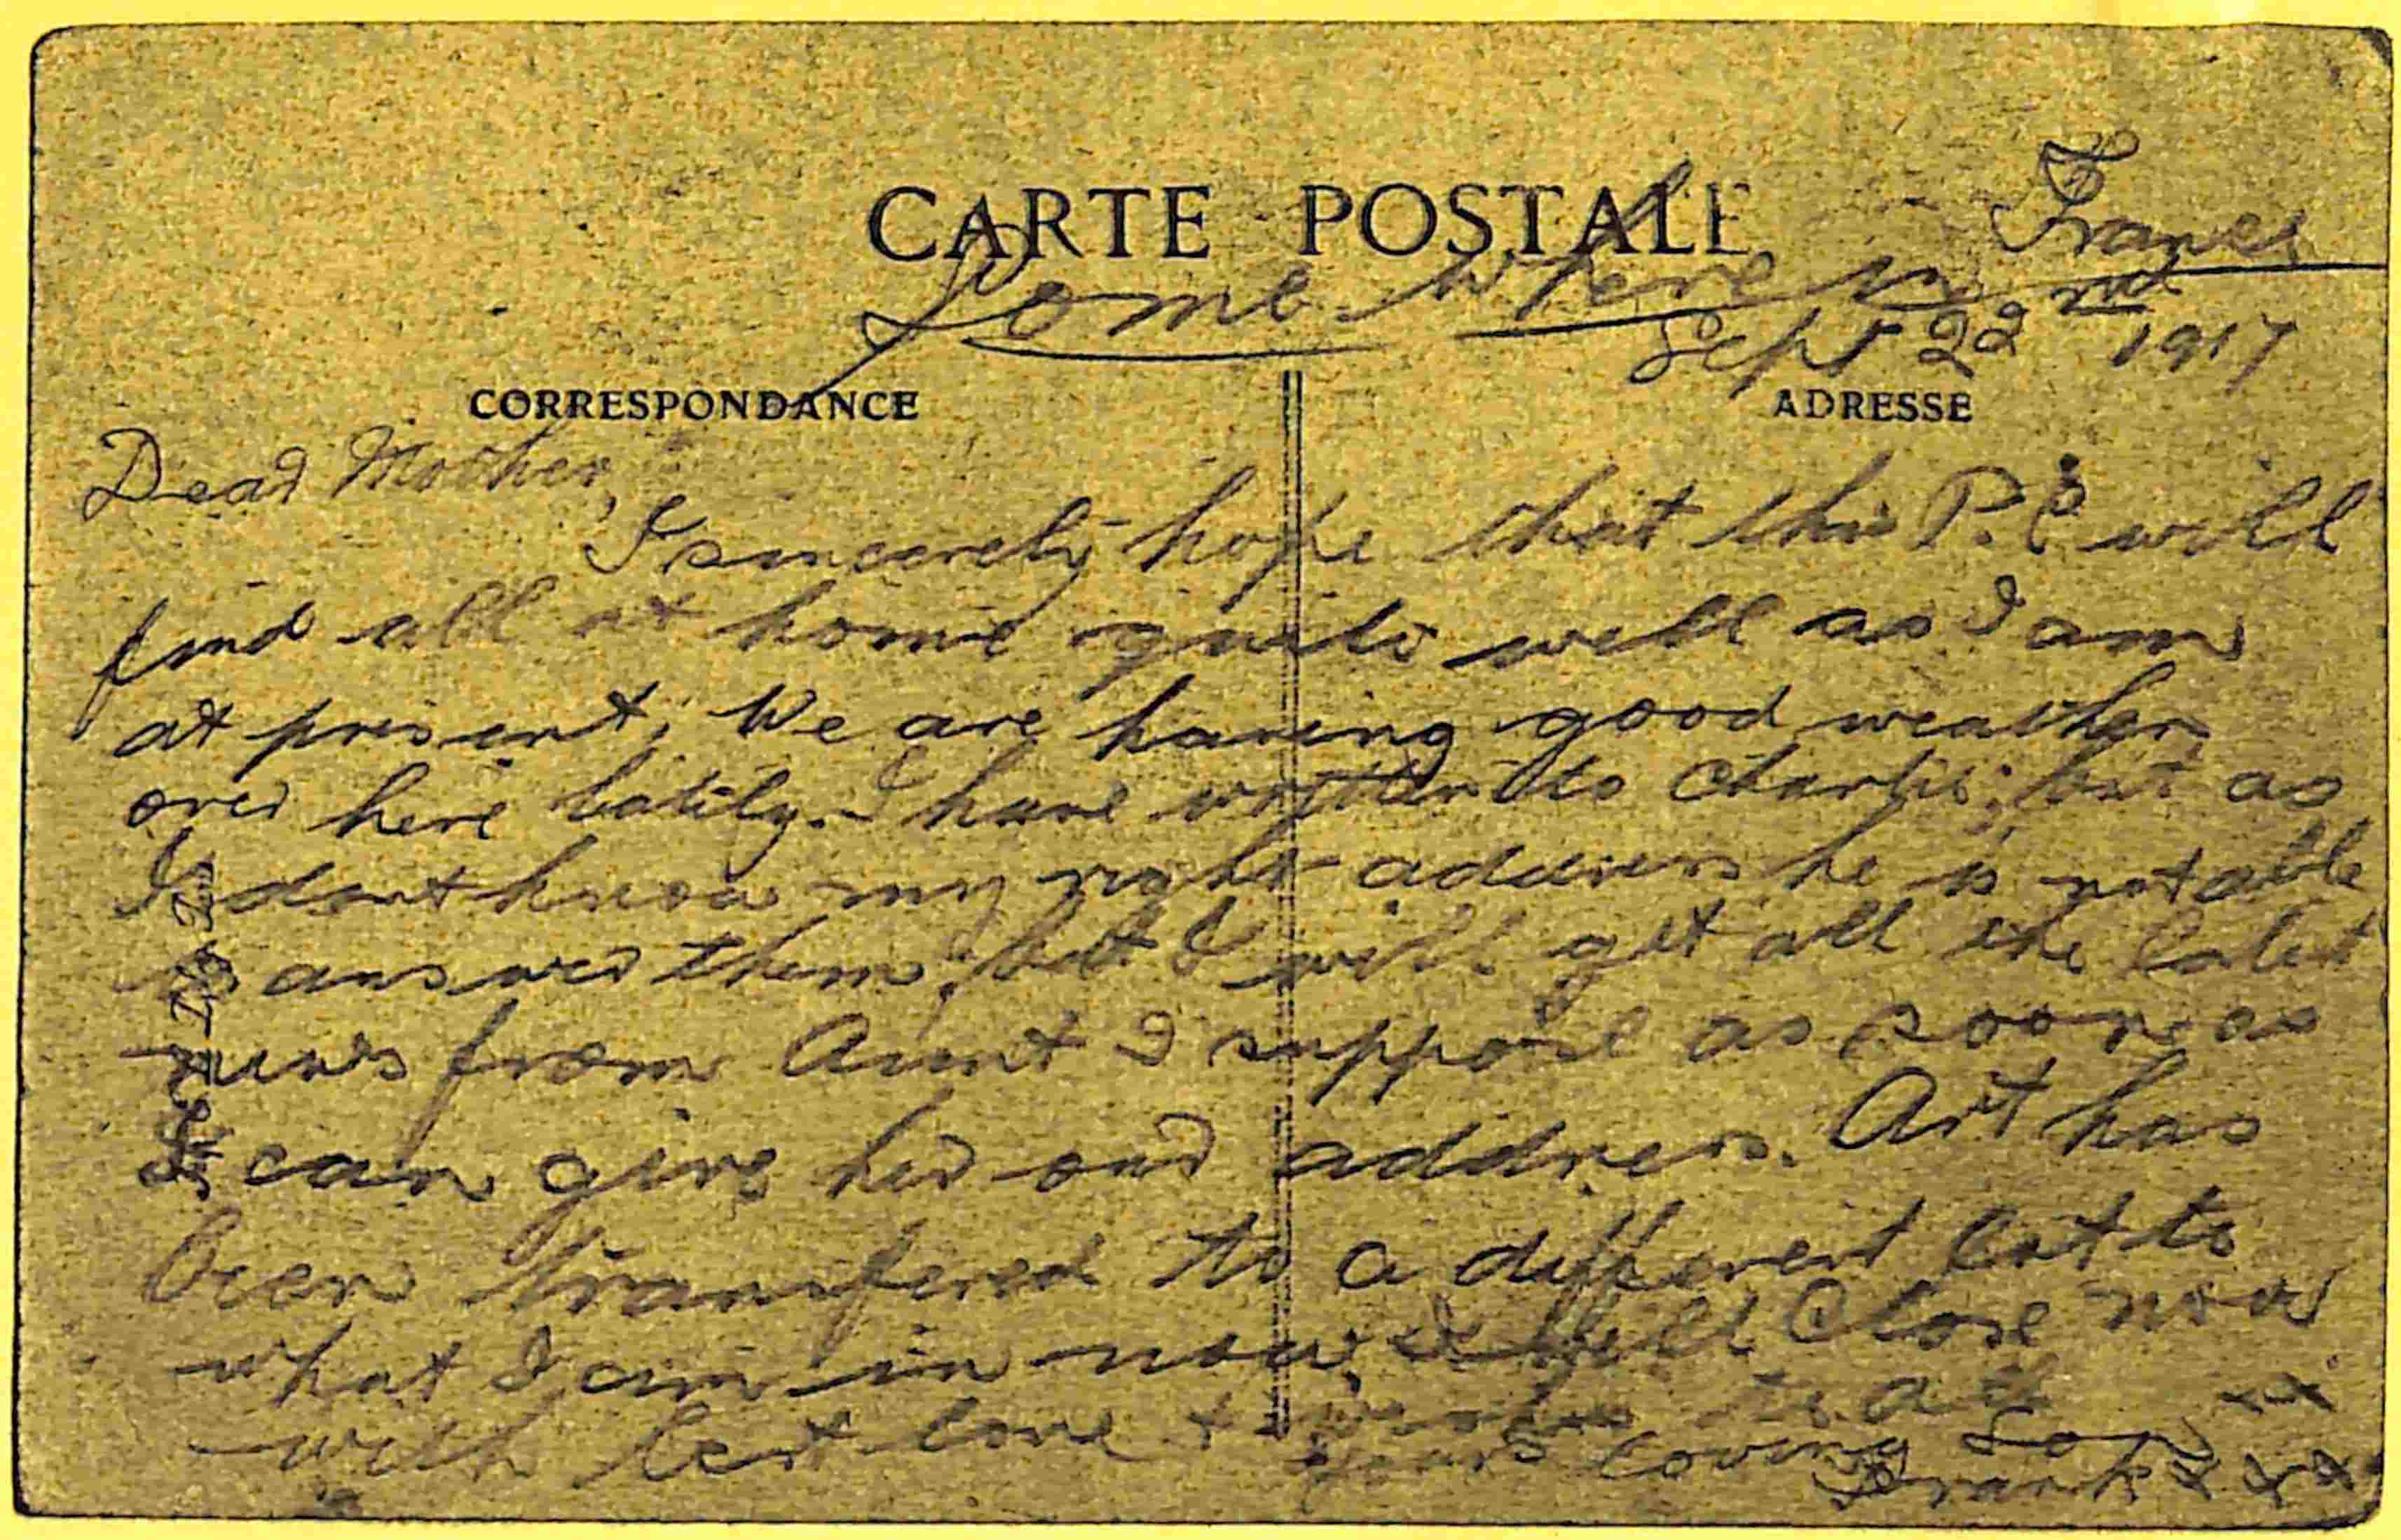 CARTE POSTALE
Somewhere in France
Sept 22nd 1917
CORRESPONDANCE
ADRESSE
Dear Mother,
I sincerely hope that this P.C will
find all at home quite well as I am
at present, We are having good weather
over here lately. I have written to Charlie; but as
I dont know my right address he is not able
to answer them, but I will get all the latest
news from Aunt I suppose as soon as
I can give her our address. Art has
been transfered to a different Batt to
what I am in now, I will Close now
with best love + wishes to all
Your loving Son
Frank x x x
x x